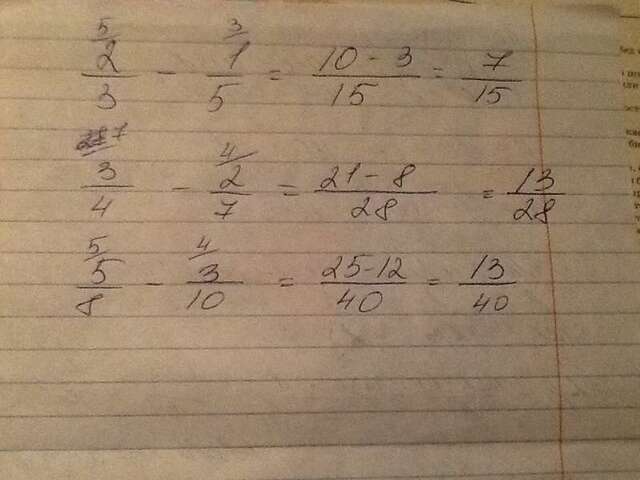 5/ 3/
2/3 - 1/5 = (10 - 3)/15 = 7/15
7 4/
3/4 - 2/7 = (21 - 8)/28 = 13/28
5/ 4/
5/8 - 3/10 = (25-12)/40 = 13/40